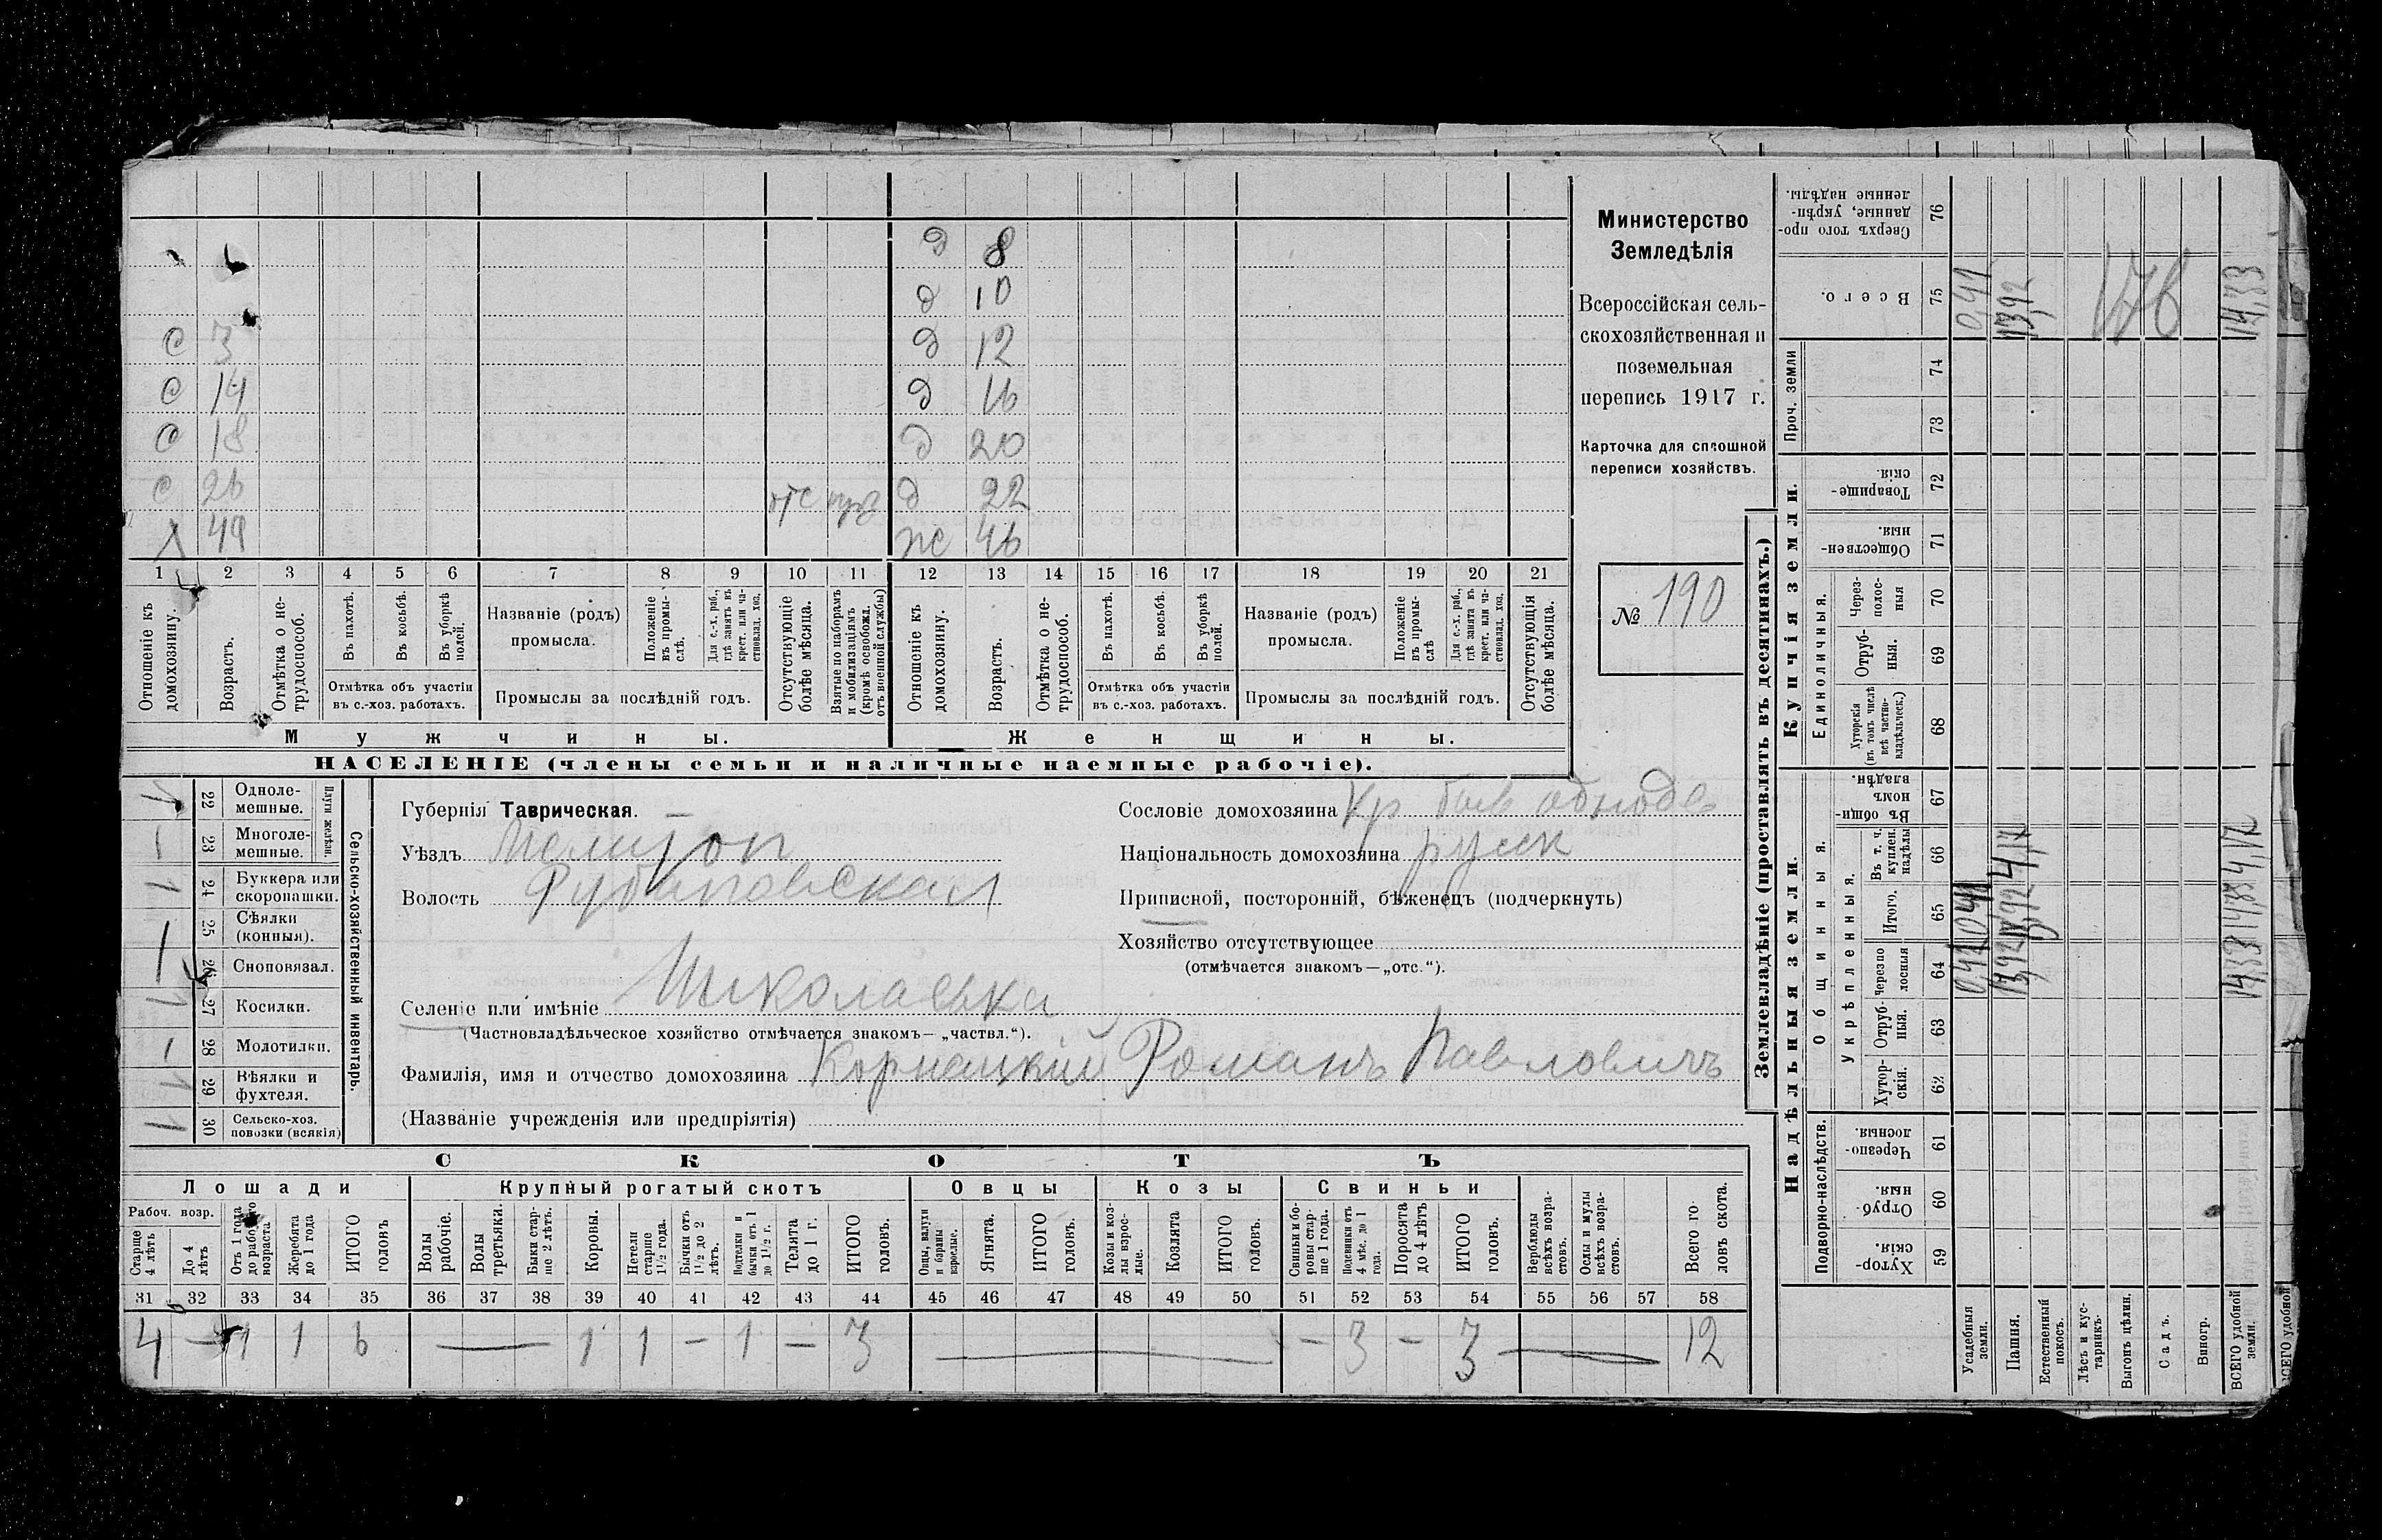 д 8
д 10
с 3 д 12
с 14 д 16
с 18 д 20
с 26 отс д 22
49 ж 46
1 2 3 4 5 6 7 8 9 10 11 12 13 14 15 16 17 18 19 20 21
Отношеніе къ домохозяину.
Возрастъ.
Отмѣтка о не-трудоспособ.
Въ пахотѣ.
Въ косьбѣ.
Въ уборкѣ полей.
Отмѣтка объ участіи въ с.-хоз. работахъ.
Названіе (родъ) промысла.
Положеніе въ промы-слѣ.
Для с.-х. раб., гдѣ занятъ въ крест. или ча-стновлад. хоз.
Промыслы за послѣдній годъ.
Отсутствующіе болѣе мѣсяца.
Взятые по наборамъ и мобилизаціямъ (кромѣ освобожд. отъ военной службы)
Отношеніе къ домохозяину.
Возрастъ.
Отмѣтка о не-трудоспособ.
Въ пахотѣ.
Въ косьбѣ.
Въ уборкѣ полей.
Отмѣтка объ участіи въ с.-хоз. работахъ.
Названіе (родъ) промысла.
Положеніе въ промы-слѣ
Для с.-х. раб., гдѣ занята въ крест. или ча-стновлад. хоз.
Промыслы за послѣдній годъ.
Отсутствующія болѣе мѣсяца.
Мужчины.
Женщины.
НАСЕЛЕНІЕ (члены семьи и наличные наемные рабочіе).
Министерство
Земледѣлія
Всероссійская сель-
скохозяйственная и
поземельная
перепись 1917 г.
Карточка для сплошной
переписи хозяйствъ.
№ 190
Сельско-хозяйственный инвентарь.
Плуги желѣзн.
22 Одноле-мешные.
1 23 Многоле-мешные.
24 Буккера или скоропашки.
25 Сѣялки (конныя).
26 Сноповязал.
27 Косилки.
28 Молотилки.
29 Вѣялки и фухтеля.
30 Сельско-хоз. повозки (всякія)
Губернія Таврическая.
Уѣздъ Мелитоп
Волость
Селеніе или имѣніе Николаевка
(Частновладѣльческое хозяйство отмѣчается знакомъ— „частвл.“).
Фамилія, имя и отчество домохозяина Корнацкій Романъ Павловичъ
(Названіе учрежденія или предпріятія)
Сословіе домохозяина Кр быв однодв
Національность домохозяина русск
Приписной, посторонній, бѣженецъ (подчеркнуть)
Хозяйство отсутствующее
(отмѣчается знакомъ—„отс.“).
СКОТЪ
Лошади Крупный рогатый скотъ Овцы Козы Свиньи
Рабоч. возр.
Старше 4 лѣтъ
До 4 лѣтъ
Отъ 1 года до рабочаго возраста
Жеребята до 1 года
ИТОГО головъ
Волы рабочіе.
Волы третьяка.
Быки стар-ше 2 лѣтъ.
Коровы.
Нетели старше 1½ года.
Бычки отъ 1½ до 2 лѣтъ.
Подтелки и бычки отъ 1 до 1½ г.
Телята до 1 г.
ИТОГО головъ.
Овцы, валухи и бараны взрослые.
Ягнята.
ИТОГО головъ.
Козы и коз-лы взрос-лые.
Козлята
ИТОГО головъ.
Свиньи и бо-ровы стар-ше 1 года.
Подсвинки отъ 4 мѣс. до 1 года.
Поросята до 4 лѣтъ
ИТОГО головъ.
Верблюды всѣхъ возра-стовъ.
Ослы и мулы всѣхъ возра-стовъ.
Всего го-ловъ скота.
31 32 33 34 35 36 37 38 39 40 41 42 43 44 45 46 47 48 49 50 51 52 53 54 55 56 57 58
4 — 1 1 6 — 1 1 — 1 — 3 — — 3 — 3 — 12
Землевладѣніе (проставлять въ десятинахъ.)
Надѣльныя земли.
Купчія земли.
Проч. земли
Подворно-наслѣдств.
Общинныя.
Укрѣпленныя.
Единоличныя.
Хутор-скія. 59
Отруб-ныя. 60
Черезпо-лосныя. 61
Хутор-скія. 62
Отруб-ныя. 63
Черезпо-лосныя 64
Итого. 65
Въ т. ч. куплен. надѣлы 66
Въ общин-номъ владѣн. 67
Хуторскія (въ томъ числѣ всѣ частно-владѣльческ.) 68
Отруб-ныя. 69
Через-полос-ныя 70
Обществен-ныя. 71
Товарище-скія. 72
73
74
Всего. 75
Сверхъ того про-данные, укрѣп-ленные надѣлы. 76
Усадебныя земли. 0,41
Пашня. 13,92 4,12 13,92
Естественный покосъ.
Лѣсъ и кус-тарникъ.
Выгонъ цѣлин.
Садъ.
Виногр.
ВСЕГО удобной земли. 14,33 4,12 14,33
ВСЕГО удобной